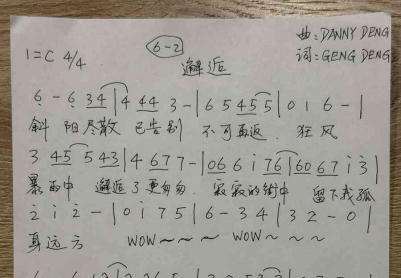 6-2
曲:DANNY DENG
1=C 4/4
邂逅
词:GENG DENG
6 - 6 34 | 4 44 3 - | 6 5 45 5 | 0 1 6 - |
斜 阳尽散 已告别 不可再返 狂风
3 45 543 | 4 677 - | 066 i 76 | 6067 i 3 |
暴雨中 邂逅了更匆匆 寂寂的街中 留下我孤
2 i 2 - | 0 i 7 5 | 6 - 3 4 | 3 2 - 0 |
身远方 WOW~~~~ WOW~~~